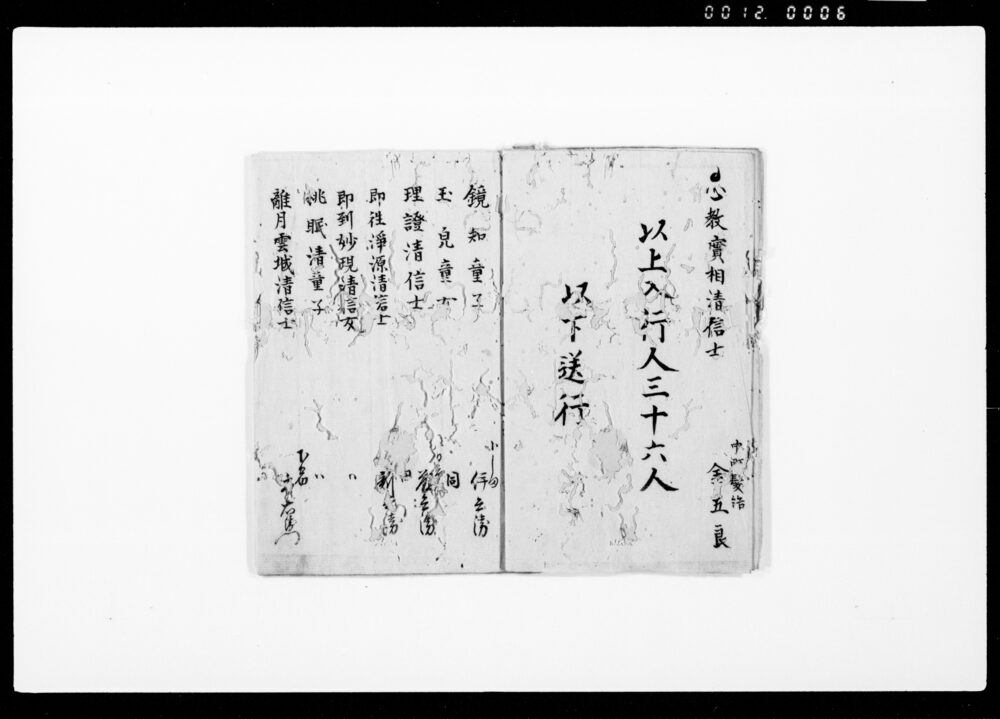 0012. 0006
心教實相清信士
中町髪結
金五良
以上入行人三十六人
以下送行
鏡知童子
玉兒童女
同
理證清信士
即往淨源清信士
即到妙現清信女
桃眠清童子
離月雲城清信士